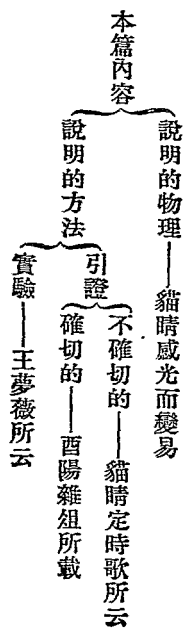 本篇內容
說明的物理——貓睛感光而變易
說明的方法
引證
不確切的——貓睛定時歌所云
確切的——酉陽雜俎所載
實驗——王夢薇所云